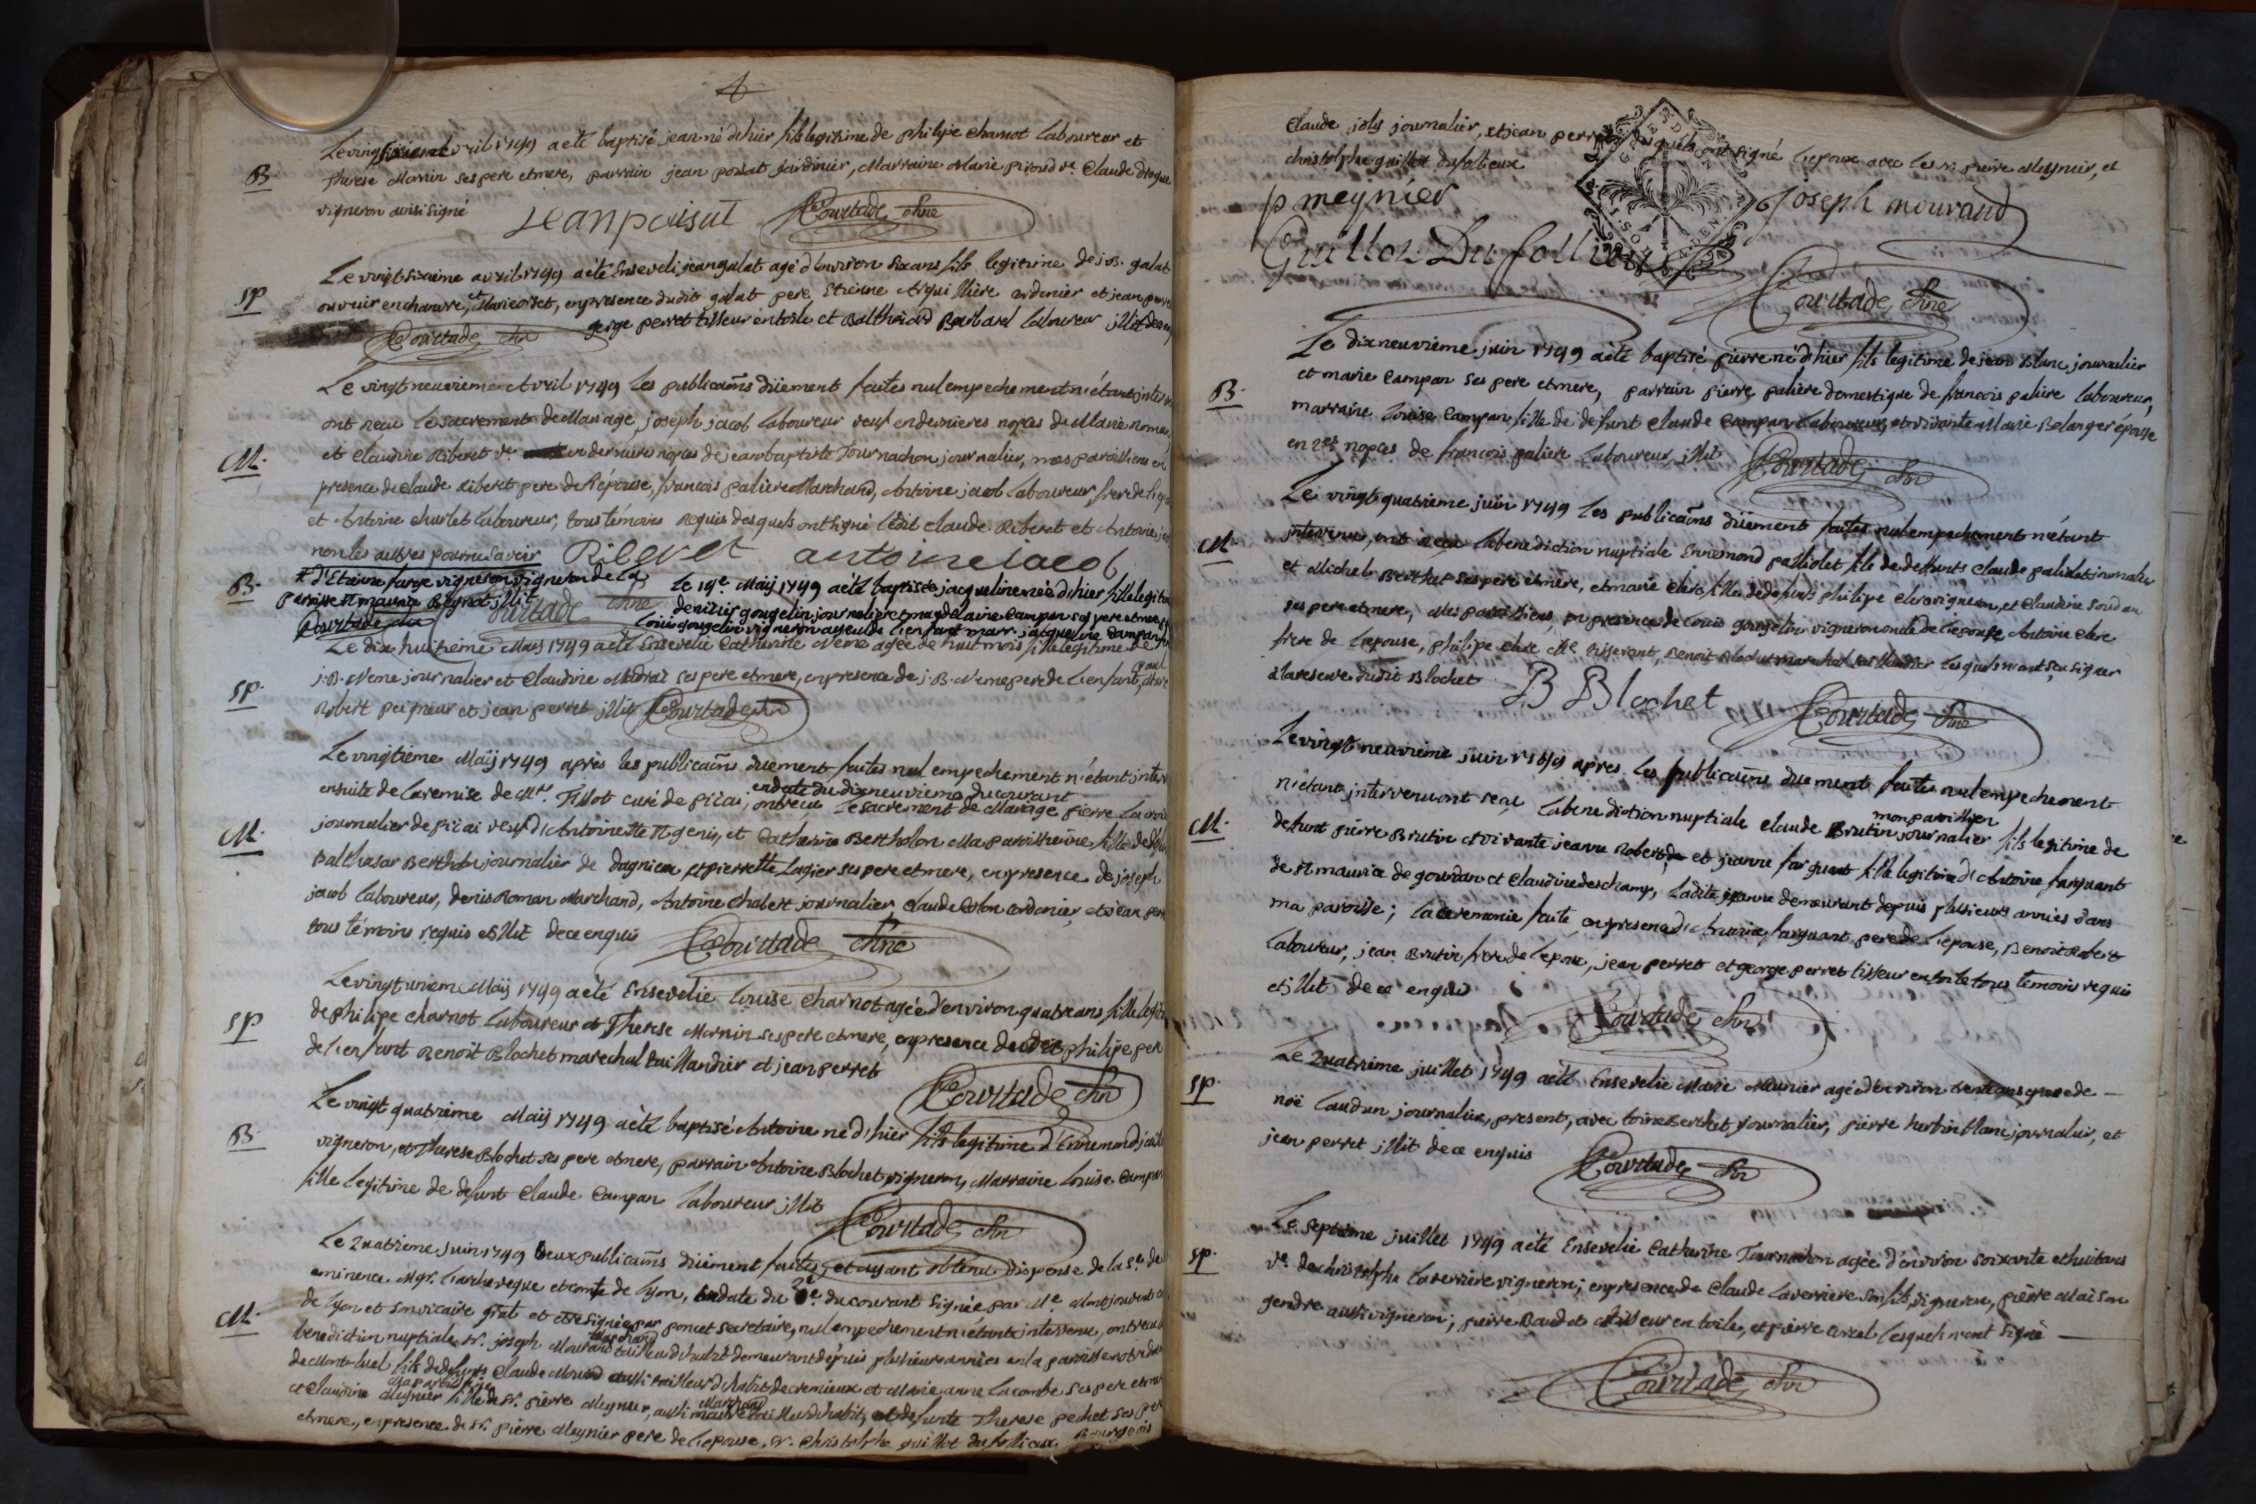 4
B. Le vingt avril 1749 a eté baptisé jean né d'hier fils legitime de philipe charnot laboureur et
Therese Mornin ses pere et mere, parrain jean poisat jardinier, Marraine Marie giroud ve. Claude
vigneron aussi signé
jean poisat Courtade Chne
sp Le vingt sixieme avril 1749 a eté Enseveli jean galat agé d'environ six ans fils legitime de j.B. galat
ouvrier en chanvre, et Marie orset, en presence dudit galat pere, Etienne Arquilliere cordonier et jean perret
george perret tisseur en toile et Balthazard Barbarel laboureur illit de ce enq
Courtade Chn
Le vingt neuvieme Avril 1749 les publicaõns düement faites nul empechement n'étant interv
ont reçu le sacrement de Mariage, joseph jacob laboureur veuf en dernieres noples de Marie
M. et Claudine Riberet ve en dernieres nopces de jean baptiste Tournachon journalier, mes paroissiens en
presence de Claude Riberet pere de l'épouse, francois paliere Marchand, Antoine jacob laboureur frere de l'ep
et Antoine charlet laboureur, tous témoins requis desquels ont signé ledit Claude Riberet et Antoine
non les autres pour ne savoir Riberet antoine iacob
Courtade Chne
B. Le 19e. Maÿ 1749 a eté baptisée jacqueline née d'hier fille legitim
de gougelin journalier et magdelaine Campan ses pere et mere
Louis gougelin vigneron ayeul de l'enfant marr. jacqueline Campan
# d'Etienne farge vigneron vigneron de la
paroisse St maurice Beynot illit
Courtade chn
Le dix huitieme Maÿ 1749 a eté Ensevelie Catherine Neme agée de huit mois fille legitime de
sp. j.B. Neme journalier et Claudine ses pere et mere, en presence de j.B. Neme pere de l'enfant,
Robert peigneur et jean perret illit Courtade Chn
Le vingtieme Maÿ 1749 après les publicaõns düement faites nul empechement n'étant interv
ensuite de la remise de Mre. Tillot curé de pizai, en date du dixneuvieme du courant
ont reçu le sacrement de Mariage pierre
M. journalier de pizai veuf d'Antoinette St genis, et Catherine Bertholon Ma paroissienne fille de
Balthasar Bertholon journalier de dagnieu et pierrette Lagier ses pere et mere, en presence de joseph
jacob laboureur, denis Roman Marchand, Antoine Chalert journalier Claude Colon cordonier, et jean perr
tous témoins requis et illit de ce enquis Courtade Chne
Le vingt unieme Maÿ 1749 a eté Ensevelie Louise charnot agée d'environ quatre ans fille legit
sp de philipe charnot Laboureur et Therese Mornin ses pere et mere, en presence dudit philipe pere
de l'enfant Benoit Blochet marechal taillandier et jean perret
Courtade Chn
Le vingt quatrieme Maÿ 1749 a eté baptisé Antoine né d'hier fils legitime d'Ennemond
B. vigneron, et Therese Blochet ses pere et mere, parrain Antoine Blochet vigneron, Marraine Louise Campan
fille legitime de defunt Claude Campan laboureur illit
Courtade Chn
Le 2uatrieme juin 1749 deux publicaõns düement faites, et ayant obtenu dispense de la 3e. de
eminence Mgr. l'archeveque et comte de Lyon, en date du 2e. du courant signée par Me. Montjouvent
M. de Lyon et son vicaire gñal et contresignée par poncet secretaire, nul empechement n'étant intervenu, ont reçu la
benediction nuptiale sr. joseph Mourand Marchand tailleur d'habit demeurant depuis plusieurs années en la paroisse
de Mont-luel fils de defunts Claude Mourand aussi tailleur d'habits de cremieux et Marie anne Lacombe ses pere et mere
et Claudine Meynier Ma paroissienne fille de sr. pierre Meynier, aussi Marchand maitre tailleur d'habits, et defunte Therese pechet ses pere
et mere, en presence de sr. pierre Meynier pere de l'epouse, sr. christolphe guillot du follieux Bourgeois
Claude joly journalier, et jean perret desquels ont signé l'epoux avec les srs. pierre Meynier, et
christolphe guillot dufollieux
p meynier Joseph mourand
Guillot Du follieux
Courtade Chne
Le dixneuvieme juin 1749 a eté baptisé pierre né d'hier fils legitime de jean Blanc journalier
B. et marie Campan ses pere et mere, parrain pierre paliere domestique de francois paliere laboureur,
marraine Louise Campan fille de defunt Claude Campan Laboureur, et vivante Marie Belanger épouse
en 2es. nopces de francois paliere Laboureur illit Courtade Chn
Le vingt quatrieme juin 1749 les publicaõns düement faites nul empechement n'étant
M. intervenu, ont reçu la benediction nuptiale Ennemond palliolet fils de defunts Claude paliolet journalier
et Michele Berthet ses pere et mere, et marie Clerc fille de defunts philipe Clerc vigneron, et Claudine
ses pere et mere, Mes paroissiens, en presence de Louis gougelin vigneron oncle de l'epouse, Antoine Clerc
frere de l'epouse, philipe Clerc, Benoit Blochet marechal taillandier lesquels n'ont sçu signer
à la reserve dudit Blochet B Blochet Courtade Chne
Le vingt neuvieme juin 1749 apres les publicaõns düement faites nul empechement
M. n'étant intervenu ont reçu la benediction nuptiale Claude Brutin mon paroissien journalier fils legitime de
defunt pierre Brutin et vivante jeanne Robert, et jeanne farguant fille legitime d'Antoine farguant
de St maurice de gourdan et Claudine deschamp, ladite jeanne demeurant depuis plusieurs années dans
ma paroisse; la ceremonie faite en presence d'Antoine farguant pere de l'epouse, Benoit Robert
Laboureur, jean Brutin frere de l'epoux, jean perret et george perret tisseur en toile tous temoins requis
et illit de ce enquis
Courtade Chn
Le 2uatrieme juillet 1749 a eté Ensevelie Marie Meunier agée d'environ trente ans epouse de
sp. noë Laudun journalier, present, avec toine Berthet journalier, pierre herbin Blanc journalier, et
jean perret illit de ce enquis Courtade Chn
Le septieme juillet 1749 a eté Ensevelie Catherine Tournachon agée d'environ soixante et huit ans
sp. ve. de christolphe Laverriere vigneron; en presence de Claude Laverriere son fils, vigneron, pierre Maison
gendre aussi vigneron; pierre Baudet tisseur en toile, et pierre lesquels n'ont signé
Courtade Chn